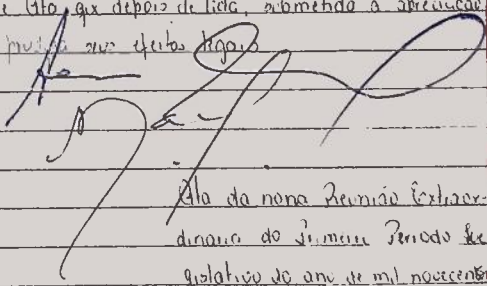 e Ata, que depois de lida, submetida à apreciação
seus efeitos legais
Ata da nona Reunião Extraor-
dinaria do Primeiro Periodo Le-
gislativo do ano de mil novecentos